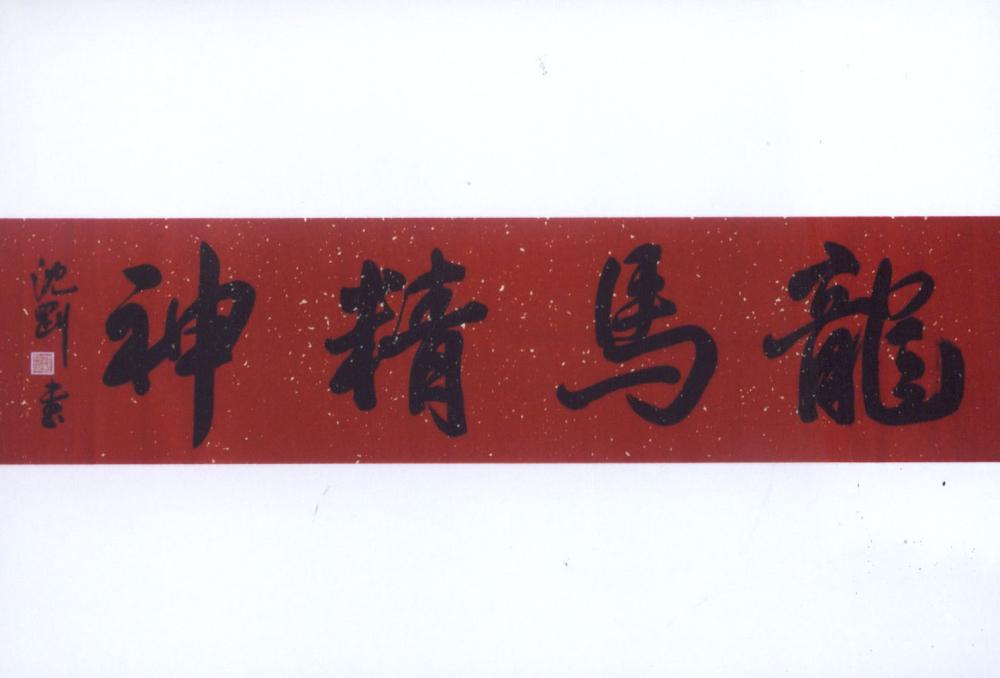 龍馬精神
沈剛書